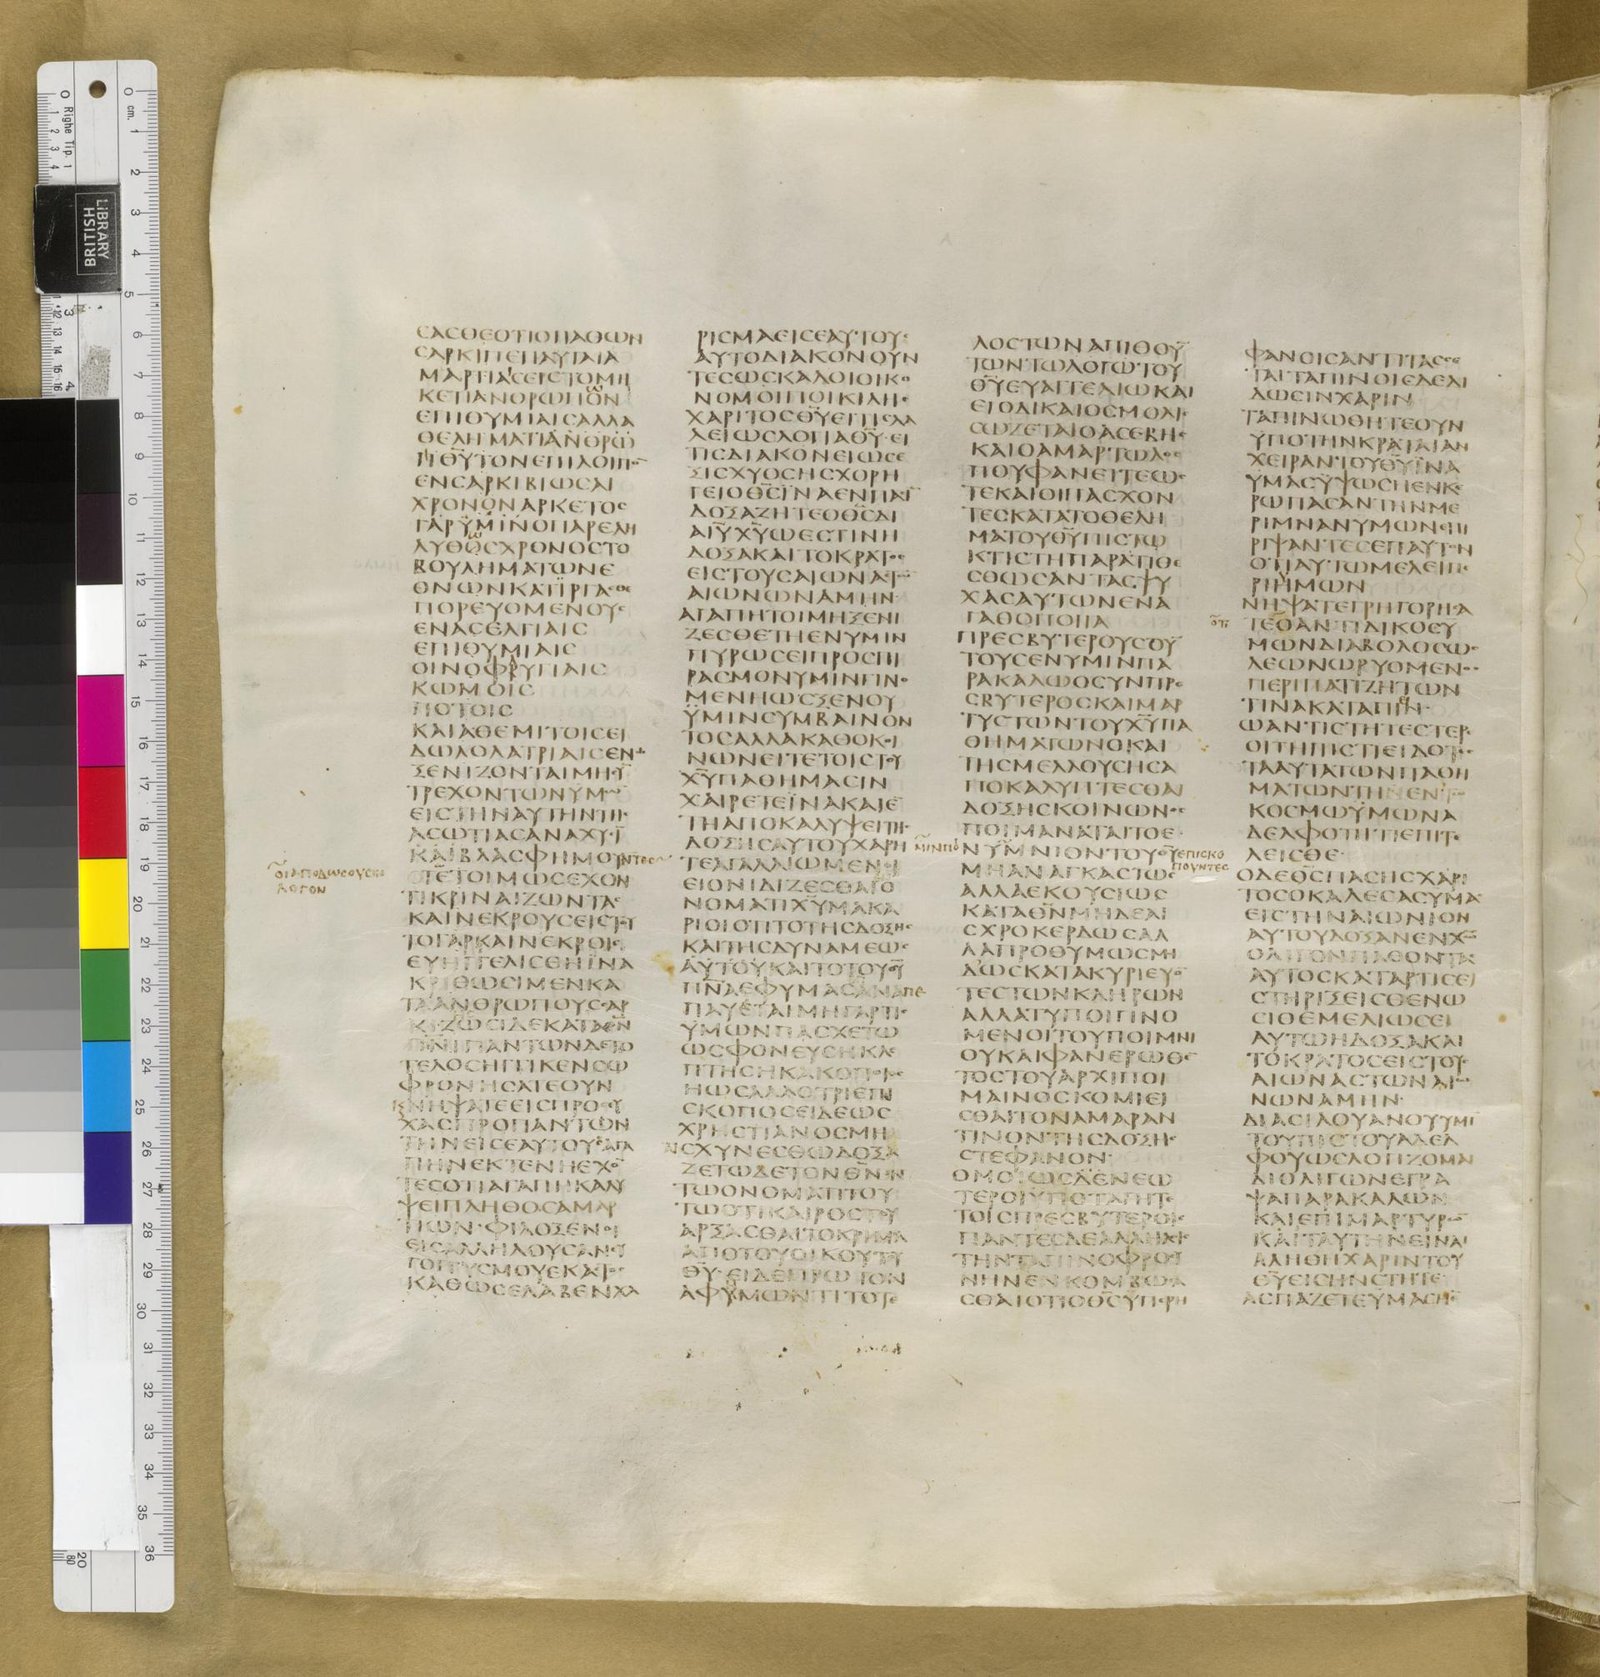 ϹΑϹΘΕΟΤΙΟΠΑΘΩΝ
ϹΑΡΚΙΠΕΠΑΥΤΑΙΑ
ΜΑΡΤΙΑϹΕΙϹΤΟΜΗ
ΚΕΤΙΑΝΘΡΩΠΩΝ
ΕΠΙΘΥΜΙΑΙϹΑΛΛΑ
ΘΕΛΗΜΑΤΙΑΝΘΡΩ
ΠΙΘΥΤΟΝΕΠΙΛΟΙΠΟ
ΕΝϹΑΡΚΙΒΙΩϹΑΙ
ΧΡΟΝΟΝΑΡΚΕΤΟϹ
ΓΑΡΫΜΙΝΟΠΑΡΕΛΗ
ΛΥΘΩϹΧΡΟΝΟϹΤΟ
ΒΟΥΛΗΜΑΤΩΝΕ
ΘΝΩΝΚΑΤΙΡΓΑϹΘΕ
ΠΟΡΕΥΟΜΕΝΟΥϹ
ΕΝΑϹΕΛΓΙΑΙϹ
ΕΠΙΘΥΜΙΑΙϹ
ΟΙΝΟΦΡΥΓΙΑΙϹ
ΚΩΜΟΙϹ
ΠΟΤΟΙϹ
ΚΑΙΑΘΕΜΙΤΟΙϹΕΙ
ΔΩΛΟΛΑΤΡΙΑΙϹΕΝΩ
ΞΕΝΙΖΟΝΤΑΙΜΗϹΥ
ΤΡΕΧΟΝΤΩΝΥΜΩ
ΕΙϹΤΗΝΑΥΤΗΝΤΗϹ
ΑϹΩΤΙΑϹΑΝΑΧΥϹΙ
ΚΑΙΒΛΑϹΦΗΜΟΥΝΤΕϹ
ΟΙΑΠΟΔΩϹΟΥϹΙΝ
ΛΟΓΟΝ
ΤΕΤΟΙΜΩϹΕΧΟΝ
ΤΙΚΡΙΝΑΙΖΩΝΤΑϹ
ΚΑΙΝΕΚΡΟΥϹΕΙϹΤΟΥ
ΤΟΓΑΡΚΑΙΝΕΚΡΟΙϹ
ΕΥΗΓΓΕΛΙϹΘΗΪΝΑ
ΚΡΙΘΩϹΙΜΕΝΚΑ
ΤΑΑΝΘΡΩΠΟΥϹϹΑΡ
ΚΙΖΩϹΙΔΕΚΑΤΑΘΝ
ΠΝΙΠΑΝΤΩΝΔΕΤΟ
ΤΕΛΟϹΗΓΓΙΚΕΝϹΩ
ΦΡΟΝΗϹΑΤΕΟΥΝ
ΚΝΗΨΑΤΕΕΙϹΠΡΟϹΕΥ
ΧΑϹΠΡΟΠΑΝΤΩΝ
ΤΗΝΕΙϹΕΑΥΤΟΥϹΑΓΑ
ΠΗΝΕΚΤΕΝΗΕΧΟ
ΤΕϹΟΤΙΑΓΑΠΗΚΑΛΥ
ΨΕΙΠΛΗΘΟϹΑΜΑΡ
ΤΙΩΝ·ΦΙΛΟΞΕΝΟΙ
ΕΙϹΑΛΛΗΛΟΥϹΑΝΕΥ
ΓΟΓΓΥϹΜΟΥΕΚΑϹΤΟϹ
ΚΑΘΩϹΕΛΑΒΕΝΧΑ
ΡΙϹΜΑΕΙϹΕΑΥΤΟΥϹ
ΑΥΤΟΔΙΑΚΟΝΟΥΝ
ΤΕϹΩϹΚΑΛΟΙΟΙΚΟ
ΝΟΜΟΙΠΟΙΚΙΛΗϹ
ΧΑΡΙΤΟϹΘΥΕΙΤΙϹΛΑ
ΛΕΙΩϹΛΟΓΙΑΘΥ·ΕΙ
ΤΙϹΔΙΑΚΟΝΕΙΩϹΕ
ΞΙϹΧΥΟϹΗϹΧΟΡΗ
ΓΕΙΟΘϹΪΝΑΕΝΠΑϹΙ
ΔΟΞΑΖΗΤΕΟΘϹΔΙ
ΑΙΥΧΥΩΕϹΤΙΝΗ
ΔΟΞΑΚΑΙΤΟΚΡΑΤΟϹ
ΕΙϹΤΟΥϹΑΙΩΝΑϹΤΩ
ΑΙΩΝΩΝΑΜΗΝ
ΑΓΑΠΗΤΟΙΜΗΞΕΝΙ
ΖΕϹΘΕΤΗΕΝΥΜΙΝ
ΠΥΡΩϹΕΙΠΡΟϹΠΙ
ΡΑϹΜΟΝΥΜΙΝΓΙΝΟ
ΜΕΝΗΩϹΞΕΝΟΥ
ΫΜΙΝϹΥΜΒΑΙΝΟΝ
ΤΟϹΑΛΛΑΚΑΘΟΚΟΙ
ΝΩΝΕΙΤΕΤΟΙϹΤΟΥ
ΧΥΠΑΘΗΜΑϹΙΝ
ΧΑΙΡΕΤΕΪΝΑΚΑΙΕ
ΤΗΑΠΟΚΑΛΥΨΕΙΤΗϹ
ΔΟΞΗϹΑΥΤΟΥΧΑΡΗ
ΤΕΑΓΑΛΛΙΩΜΕΝΟΙ
ΕΙΟΝΙΔΙΖΕϹΘΑΙΟ
ΝΟΜΑΤΙΧΥΜΑΚΑ
ΡΙΟΙΟΤΙΤΟΤΗϹΔΟΞΗϹ
ΚΑΙΤΗϹΔΥΝΑΜΕΩϹ
ΑΥΤΟΥΚΑΙΤΟΤΟΥΘΥ
ΠΝΑΕΦΥΜΑϹΑΝΑΠΕ
ΠΑΥΕΤΑΙΜΗΓΑΡΤΙϹ
ΥΜΩΝΠΑϹΧΕΤΩ
ΩϹΦΟΝΕΥϹΗΚΛΕ
ΠΤΗϹΗΚΑΚΟΠΟΙΟϹ
ΗΩϹΑΛΛΟΤΡΙΕΠΙ
ϹΚΟΠΟϹΕΙΔΕΩϹ
ΧΡΗϹΤΙΑΝΟϹΜΗ
ΑΙϹΧΥΝΕϹΘΩΔΟΞΑ
ΖΕΤΩΔΕΤΟΝΘΝΕΝ
ΤΩΟΝΟΜΑΤΙΤΟΥ
ΤΩΟΤΙΚΑΙΡΟϹΤΟΥ
ΑΡΞΑϹΘΑΙΤΟΚΡΙΜΑ
ΑΠΟΤΟΥΟΙΚΟΥΤΟΥ
ΘΥ·ΕΙΔΕΠΡΩΤΟΝ
ΑΦΥΜΩΝΤΙΤΟΤΕ
ΛΟϹΤΩΝΑΠΙΘΟΥ
ΤΩΝΤΩΛΟΓΩΤΟΥ
ΘΥΕΥΑΓΓΕΛΙΩΚΑΙ
ΕΙΟΔΙΚΑΙΟϹΜΟΛΙϹ
ϹΩΖΕΤΑΙΟΑϹΕΒΗϹ
ΚΑΙΟΑΜΑΡΤΩΛΟϹ
ΠΟΥΦΑΝΕΙΤΕΩϹ
ΤΕΚΑΙΟΙΠΑϹΧΟΝ
ΤΕϹΚΑΤΑΤΟΘΕΛΗ
ΜΑΤΟΥΘΥΠΙϹΤΩ
ΚΤΙϹΤΗΠΑΡΑΤΙΘΕ
ϹΘΩϹΑΝΤΑϹΨΥ
ΧΑϹΑΥΤΩΝΕΝΑ
ΓΑΘΟΠΟΙΙΑ
ΠΡΕϹΒΥΤΕΡΟΥϹΟΥ
ΤΟΥϹΕΝΥΜΙΝΠΑ
ΡΑΚΑΛΩΟϹΥΝΠΡΕ
ϹΒΥΤΕΡΟϹΚΑΙΜΑΡ
ΤΥϹΤΩΝΤΟΥΧΥΠΑ
ΘΗΜΑΤΩΝΟΚΑΙ
ΤΗϹΜΕΛΛΟΥϹΗϹΑ
ΠΟΚΑΛΥΠΤΕϹΘΑΙ
ΔΟΞΗϹΚΟΙΝΩΝΟϹ
ΠΟΙΜΑΝΑΤΑΙΤΟΕ
ΜΙΝΠΟΙ
ΝΥΜΝΙΟΝΤΟΥΘΥΕΠΙϹΚΟ
ΠΟΥΝΤΕϹ
ΜΗΑΝΑΓΚΑϹΤΩϹ
ΑΛΛΑΕΚΟΥϹΙΩϹ
ΚΑΤΑΘΝΜΗΔΕΑΙ
ϹΧΡΟΚΕΡΔΩϹΑΛ
ΛΑΠΡΟΘΥΜΩϹΜΗ
ΔΩϹΚΑΤΑΚΥΡΙΕΥΟ
ΤΕϹΤΩΝΚΛΗΡΩΝ
ΑΛΛΑΤΥΠΟΙΓΙΝΟ
ΜΕΝΟΙΤΟΥΠΟΙΜΝΙ
ΟΥΚΑΙΦΑΝΕΡΩΘΕ
ΤΟϹΤΟΥΑΡΧΙΠΟΙ
ΜΑΙΝΟϹΚΟΜΙΕΙ
ϹΘΑΙΤΟΝΑΜΑΡΑΝ
ΤΙΝΟΝΤΗϹΔΟΞΗϹ
ϹΤΕΦΑΝΟΝ·
ΟΜΟΙΩϹΔΕΝΕΩ
ΤΕΡΟΙΥΠΟΤΑΓΗΤΕ
ΤΟΙϹΠΡΕϹΒΥΤΕΡΟΙϹ
ΠΑΝΤΕϹΔΕΑΛΛΗΛΟΙϹ
ΤΗΝΤΑΠΙΝΟΦΡΟϹΥ
ΝΗΝΕΝΚΟΜΒΩϹΑ
ϹΘΑΙΟΤΙΟΘϹΫΠΕΡΗ
ΦΑΝΟΙϹΑΝΤΙΤΑϹϹΕ
ΤΑΙΤΑΠΙΝΟΙϹΔΕΔΙ
ΔΩϹΙΝΧΑΡΙΝ
ΤΑΠΙΝΩΘΗΤΕΟΥΝ
ΥΠΟΤΗΝΚΡΑΤΑΙΑΝ
ΧΕΙΡΑΝΤΟΥΘΥΪΝΑ
ΥΜΑϹΫΨΩϹΗΕΝΚΕ
ΡΩΠΑϹΑΝΤΗΝΜΕ
ΡΙΜΝΑΝΥΜΩΝΕΠΙ
ΡΙΨΑΝΤΕϹΕΠΑΥΤΟΝ
ΟΤΙΑΥΤΩΜΕΛΕΙΠΕ
ΡΙΗΜΩΝ
ΝΗΨΑΤΕΓΡΗΓΟΡΗϹΑ
ΟΤΙ
ΤΕΟΑΝΤΙΔΙΚΟϹΥ
ΜΩΝΔΙΑΒΟΛΟϹΩϹ
ΛΕΩΝΩΡΥΟΜΕΝΟϹ
ΠΕΡΙΠΑΤΙΖΗΤΩΝ
ΤΙΝΑΚΑΤΑΠΙΕΙΝ·
ΩΑΝΤΙϹΤΗΤΕϹΤΕΡΕ
ΟΙΤΗΠΙϹΤΙΕΙΔΟΤΕϹ
ΤΑΑΥΤΑΤΩΝΠΑΘΗ
ΜΑΤΩΝΤΗΕΝΤΩ
ΚΟϹΜΩΫΜΩΝΑ
ΔΕΛΦΟΤΗΤΙΕΠΙΤΕ
ΛΕΙϹΘΕ·
ΟΔΕΘϹΠΑϹΗϹΧΑΡΙ
ΤΟϹΟΚΑΛΕϹΑϹΥΜΑϹ
ΕΙϹΤΗΝΑΙΩΝΙΟΝ
ΑΥΤΟΥΔΟΞΑΝΕΝΧΩ
ΟΛΙΓΟΝΠΑΘΟΝΤΑϹ
ΑΥΤΟϹΚΑΤΑΡΤΙϹΕΙ
ϹΤΗΡΙΞΕΙϹΘΕΝΩ
ϹΙΘΕΜΕΛΙΩϹΕΙ
ΑΥΤΩΗΔΟΞΑΚΑΙ
ΤΟΚΡΑΤΟϹΕΙϹΤΟΥϹ
ΑΙΩΝΑϹΤΩΝΑΙΩ
ΝΩΝΑΜΗΝ·
ΔΙΑϹΙΛΟΥΑΝΟΥΥΜΙ
ΤΟΥΠΙϹΤΟΥΑΔΕΛ
ΦΟΥΩϹΛΟΓΙΖΟΜΑΙ
ΔΙΟΛΙΓΩΝΕΓΡΑ
ΨΑΠΑΡΑΚΑΛΩΝ
ΚΑΙΕΠΙΜΑΡΤΥΡΩ
ΚΑΙΤΑΥΤΗΝΕΙΝΑΙ
ΑΛΗΘΗΧΑΡΙΝΤΟΥ
ΘΥΕΙϹΗΝϹΤΗΤΕ
ΑϹΠΑΖΕΤΕΥΜΑϹΗ
LIBRARY
BRITISH